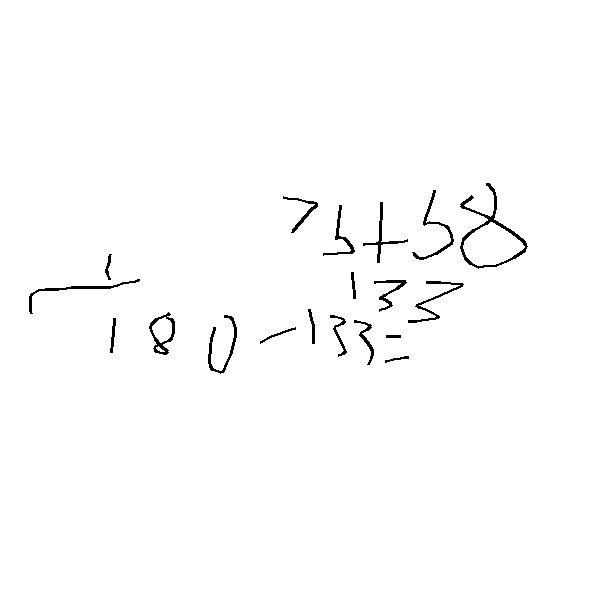 75+58
133
1
180-133=